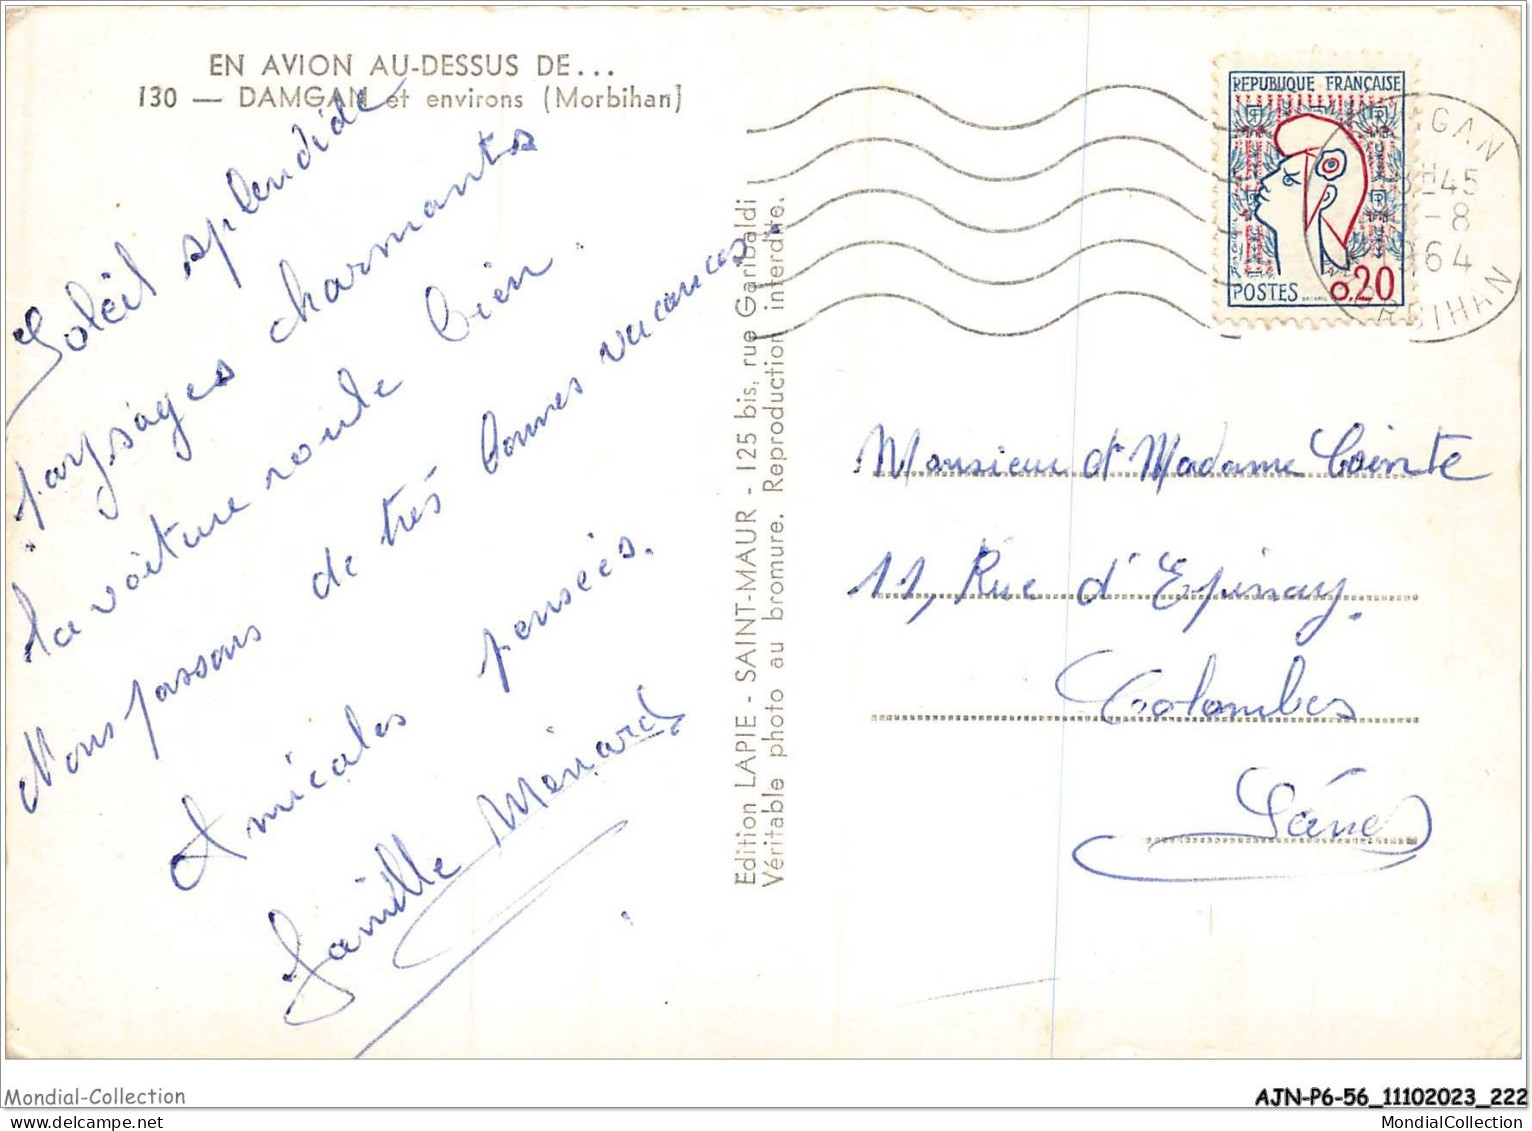 EN AVION AU-DESSUS DE...
130 — DAMGAN et environs (Morbihan)
Soleil splendide
paysages charmants
la voiture roule bien.
Nous passons de très bonnes vacances.
Amicales pensées.
famille Ménard
Edition LAPIE - SAINT-MAUR - 125 bis, rue Garibaldi
Véritable photo au bromure. Reproduction interdite.
REPUBLIQUE FRANÇAISE
POSTES
0,20
GAN
-45
-8
1964
MORBIHAN
Monsieur et Madame Cointe
11, Rue d'Epinay.
Colombes
Seine
Mondial-Collection
AJN-P6-56_11102023_222
MondialCollection